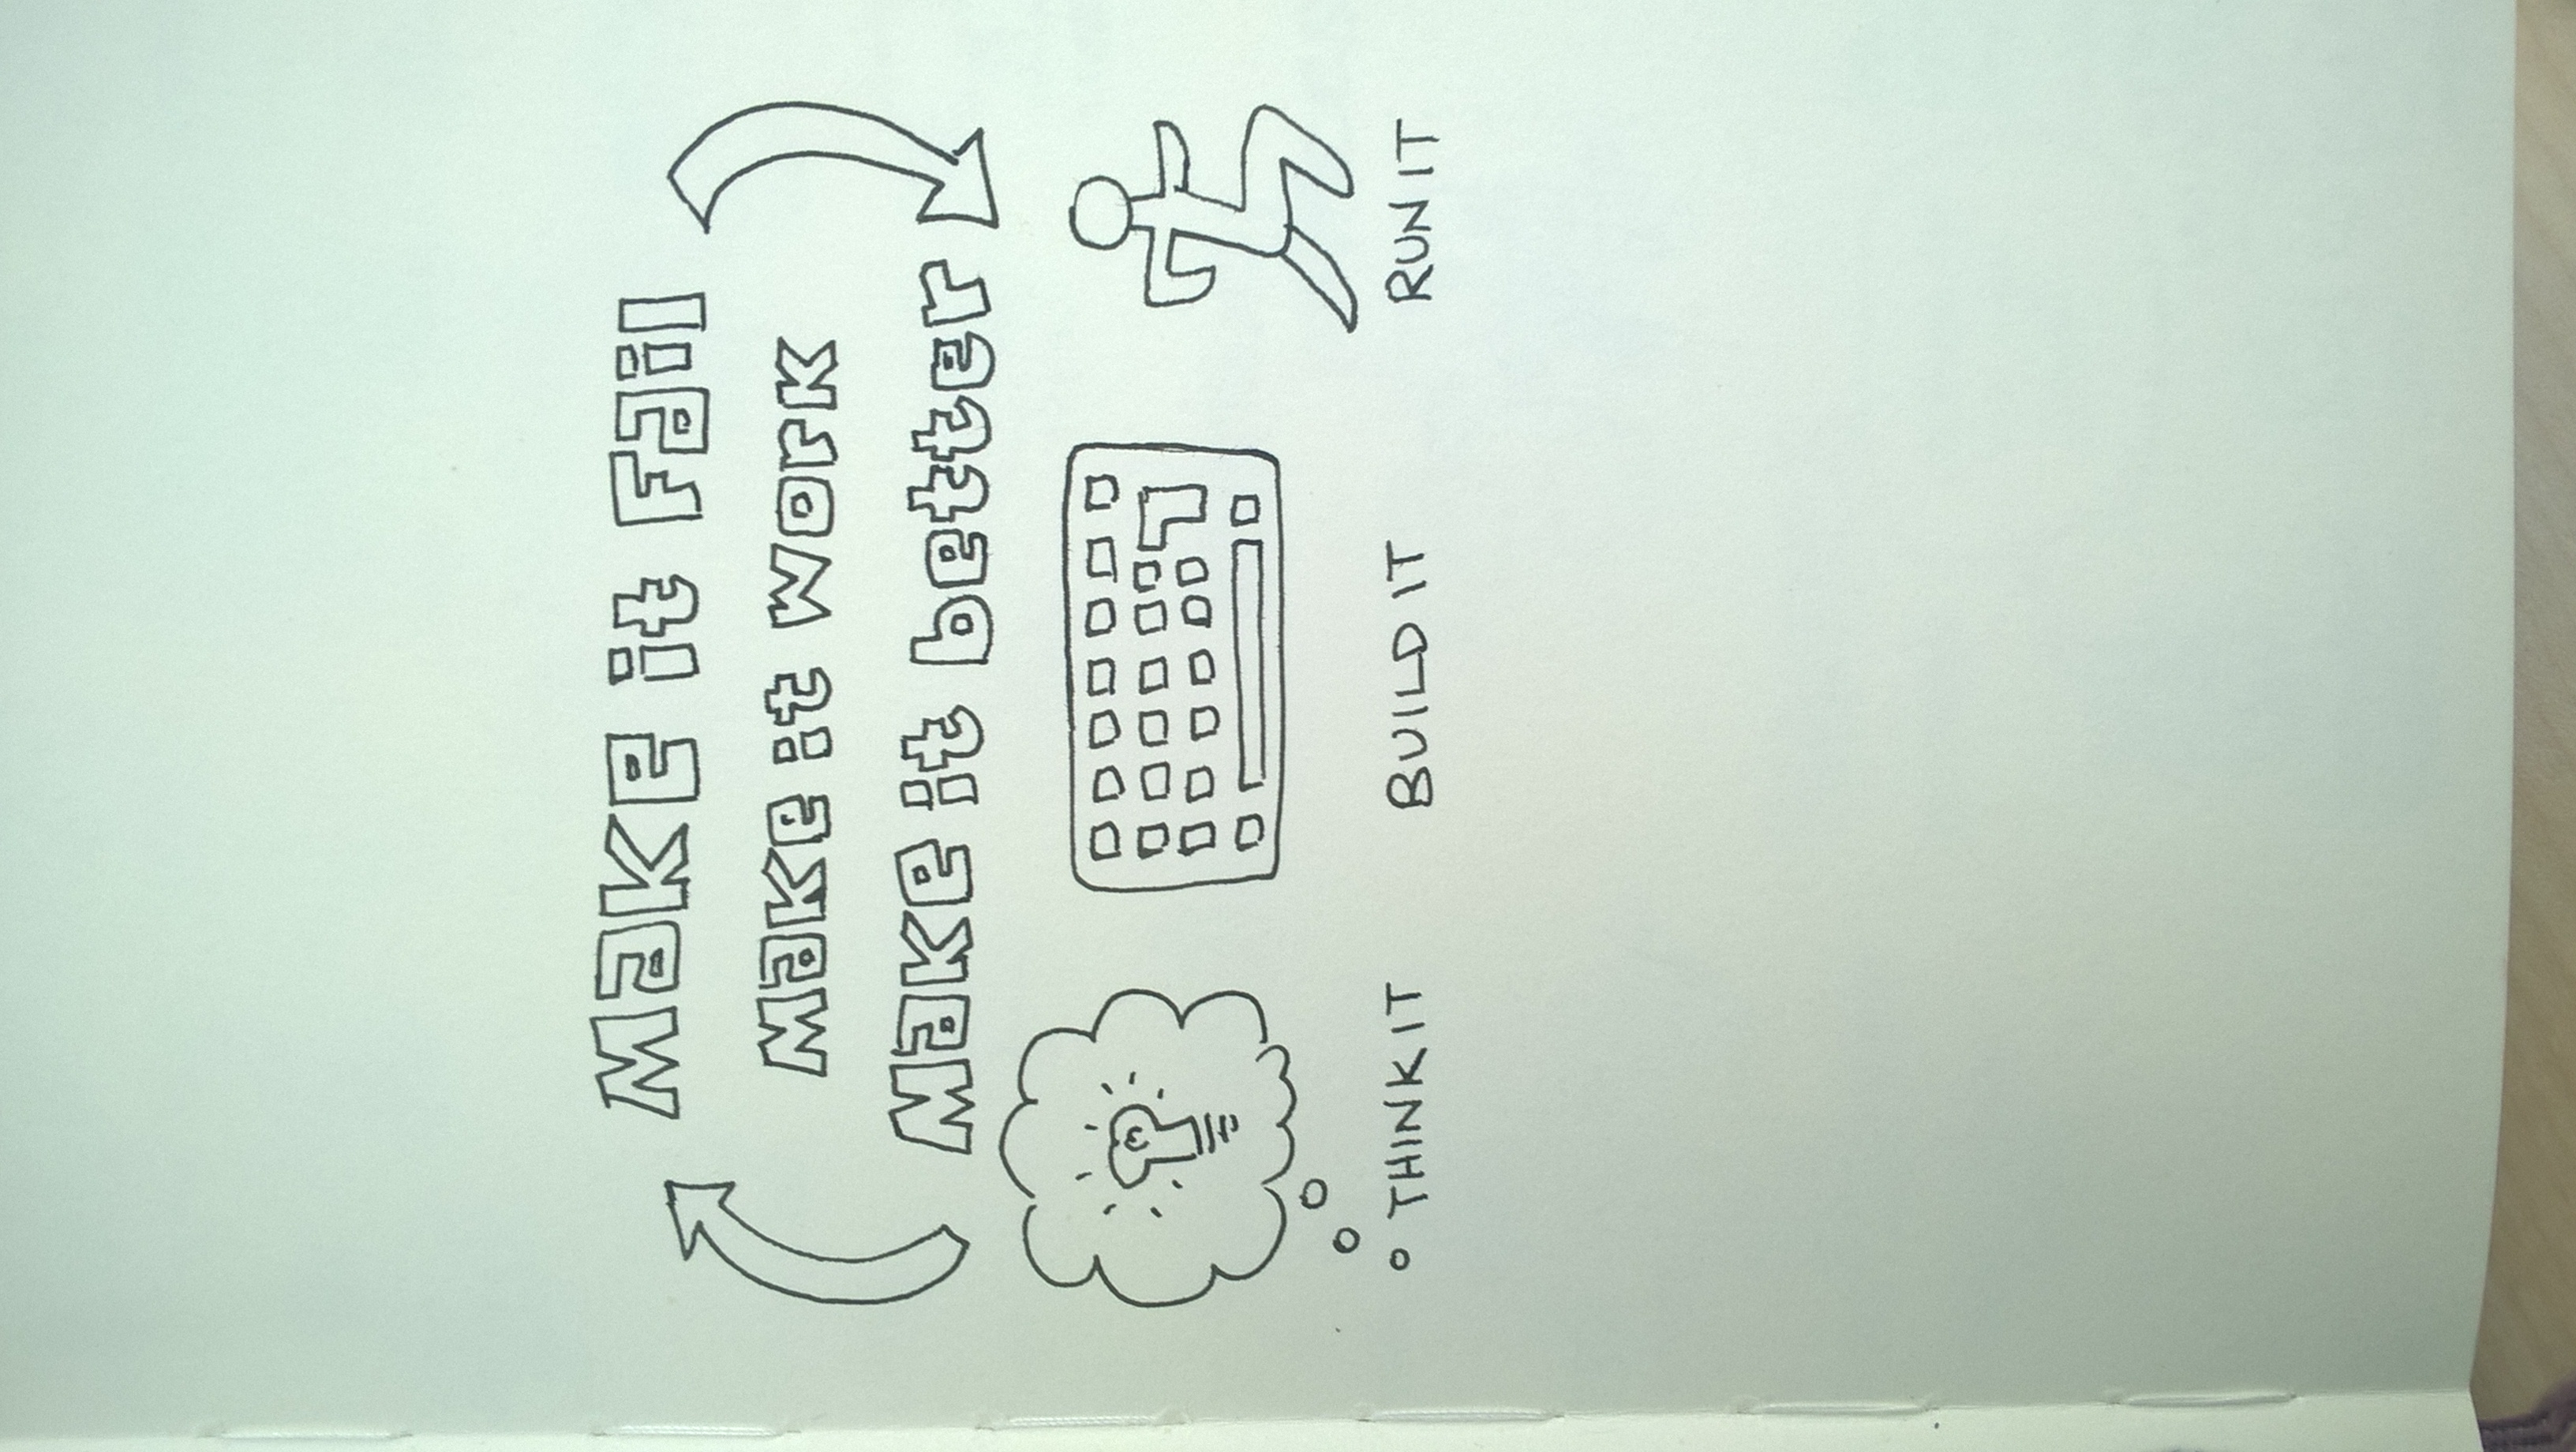 Make it Fail
make it work
make it better
THINK IT
BUILD IT
RUN IT